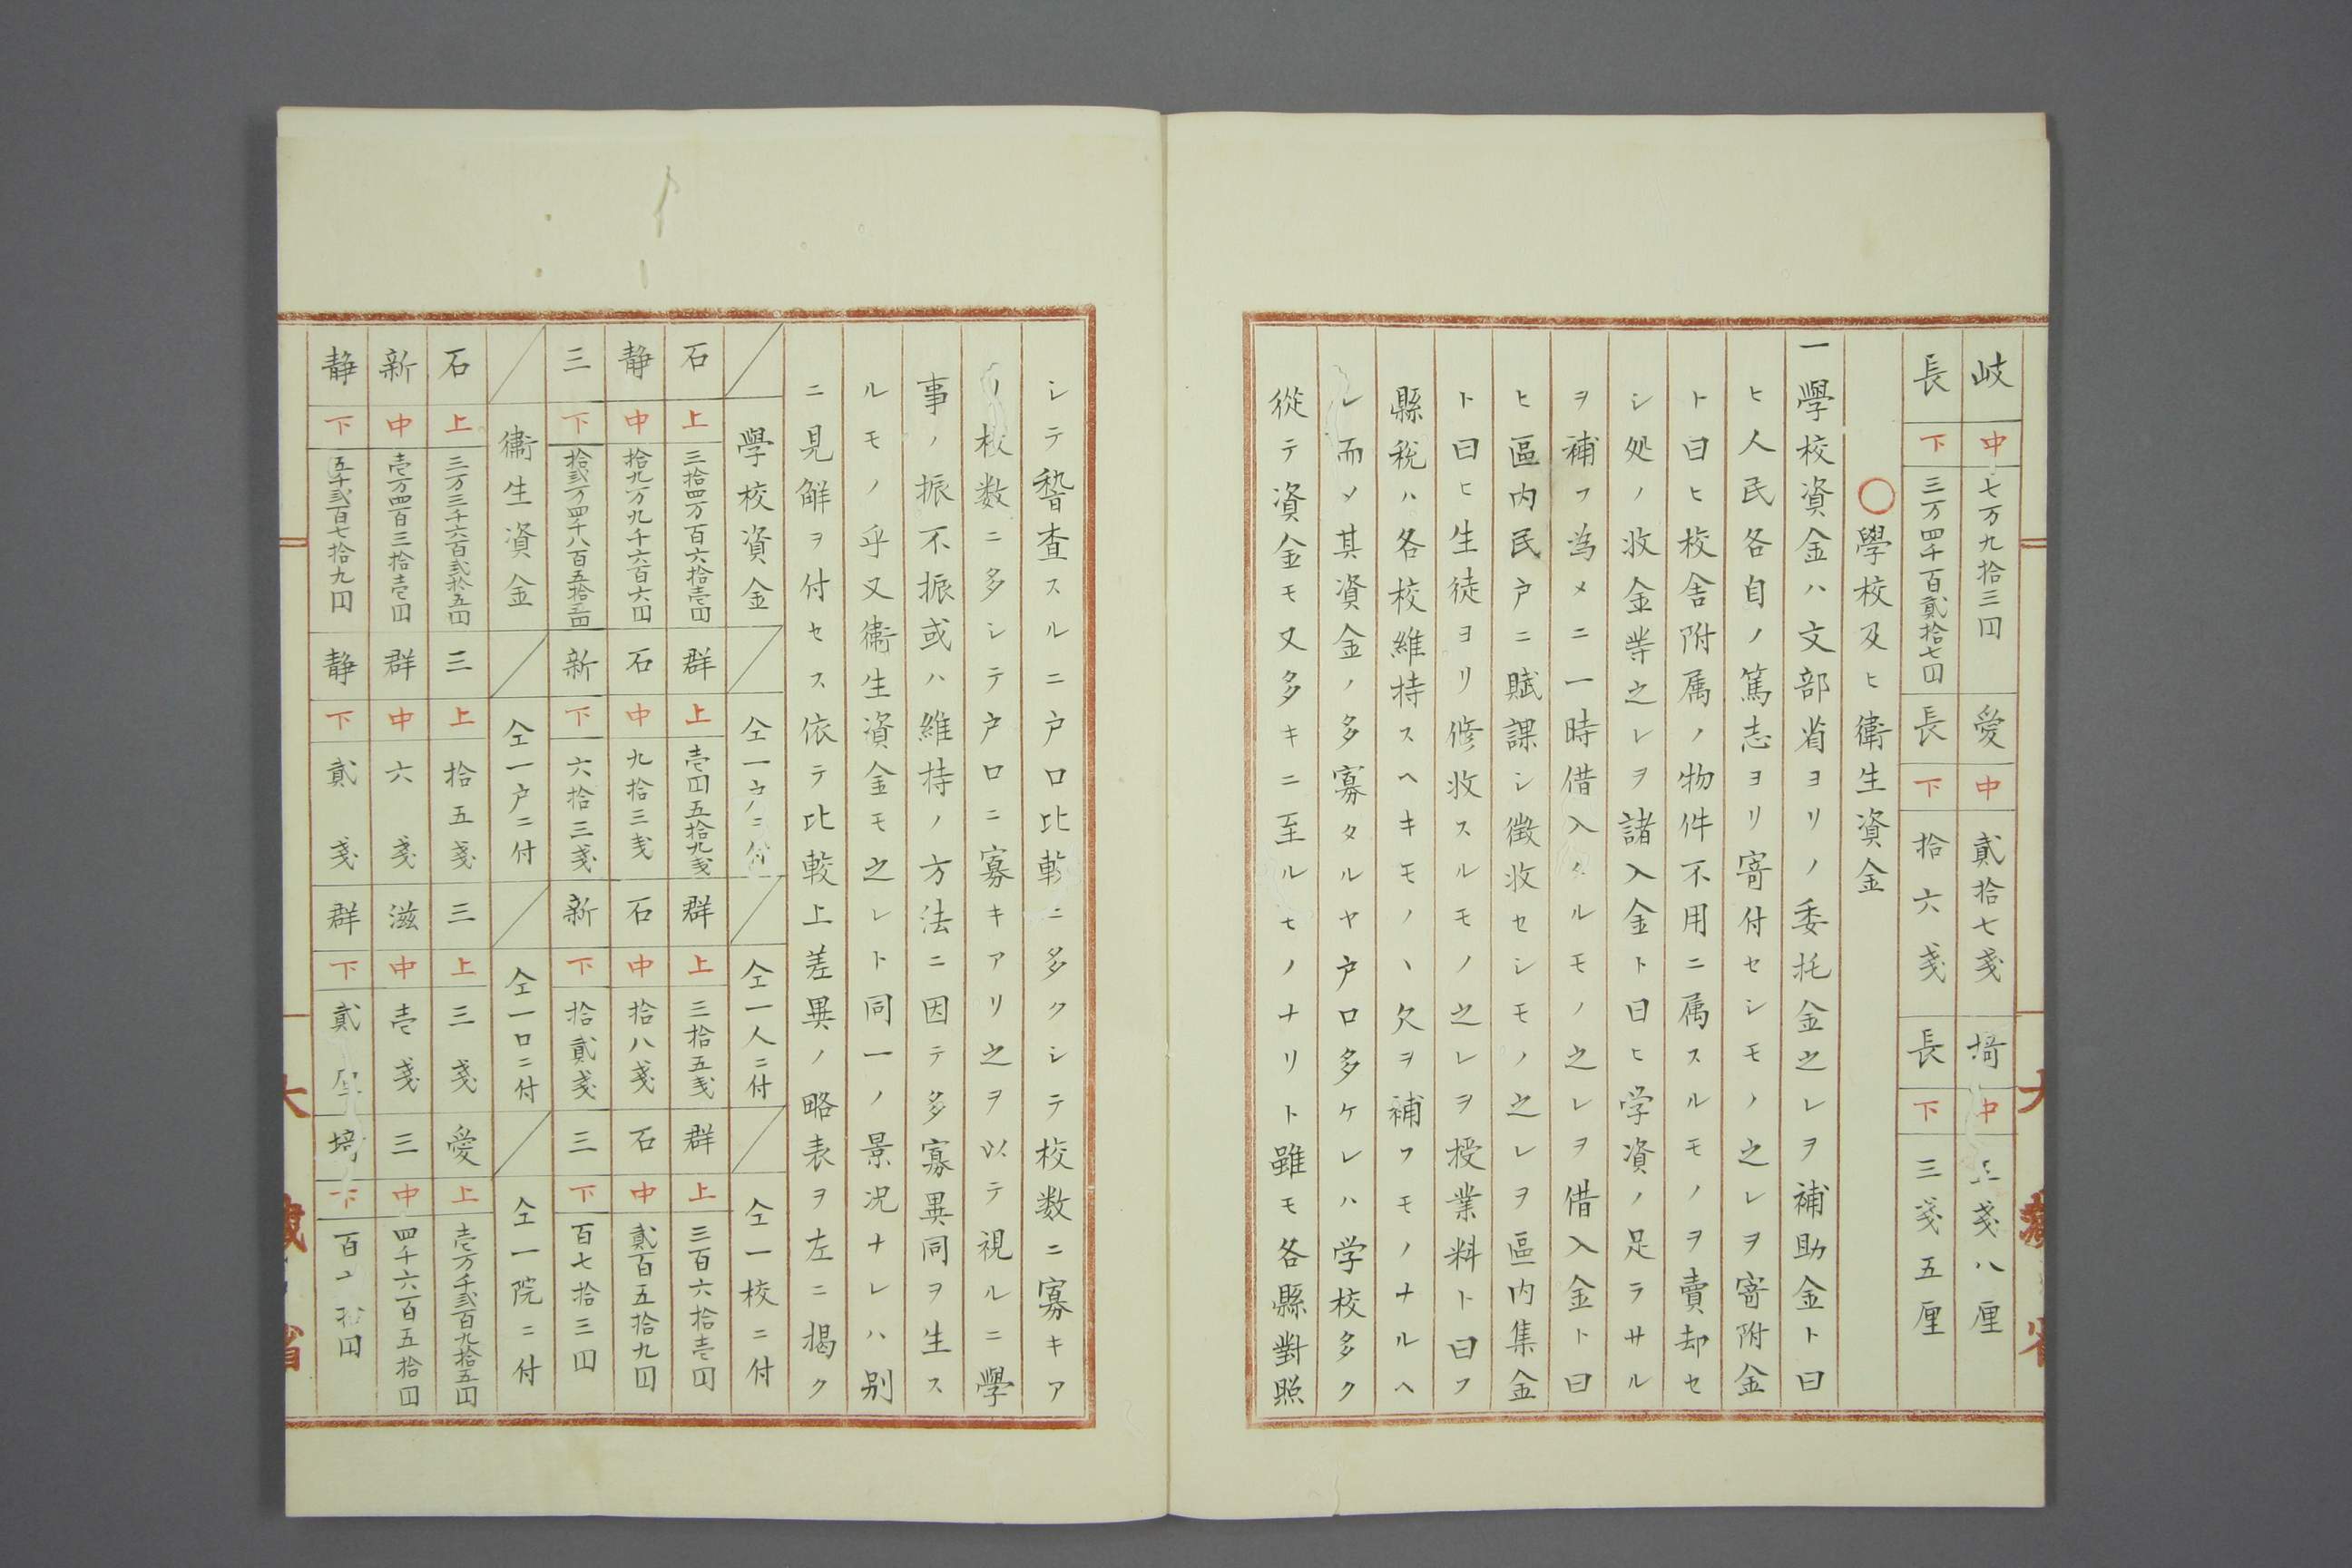 岐 中 七万九拾三円 愛 中 貳拾七戔 埼 中 三戔八厘
長 下 三万四千百貳拾七円 長 下 拾六戔 長 下 三戔五厘
○學校及ヒ衛生資金
一學校資金ハ文部省ヨリノ委托金之レヲ補助金ト曰
ヒ人民各自ノ篤志ヨリ寄付セシモノ之レヲ寄附金
ト曰ヒ校舎附属ノ物件不用ニ属スルモノヲ賣却セ
シ処ノ收金等之レヲ諸入金ト曰ヒ学資ノ足ラサル
ヲ補フ為メニ一時借入タルモノ之レヲ借入金ト曰
ヒ區内民戸ニ賦課シ徴收セシモノ之レヲ區内集金
ト曰ヒ生徒ヨリ修收スルモノ之レヲ授業料ト曰フ
縣税ハ各校維持スヘキモノヽ欠ヲ補フモノナルヘ
レ而メ其資金ノ多寡タルヤ戸口多ケレハ学校多ク
從テ資金モ又多キニ至ルモノナリト雖モ各縣對照
シテ稽査スルニ戸口比較ニ多クシテ校数ニ寡キア
リ校数ニ多シテ戸口ニ寡キアリ之ヲ以テ視ルニ學
事ノ振不振或ハ維持ノ方法ニ因テ多寡異同ヲ生ス
ルモノ乎又衞生資金モ之レト同一ノ景況ナレハ別
ニ見解ヲ付セス依テ比較上差異ノ略表ヲ左ニ掲ク
學校資金 仝一戸ニ付 仝一人ニ付 仝一校ニ付
石 上 三拾四万百六拾壱円 群 上 壱円五拾九戔 群 上 三拾五戔 群 上 三百六拾壱円
静 中 拾九万九千六百六円 石 中 九拾三戔 石 中 拾八戔 石 中 貳百五拾九円
三 下 拾貳万四千八百五拾三円 新 下 六拾三戔 新 下 拾貳戔 三 下 百七拾三円
衞生資金 仝一戸ニ付 仝一口ニ付 仝一院ニ付
石 上 三万三千六百貳拾五円 三 上 拾五戔 三 上 三戔 愛 上 壱万千貳百九拾五円
新 中 壱万四百三拾壱円 群 中 六戔 滋 中 壱戔 三 中 四千六百五拾円
静 下 五千貳百七拾九円 静 下 貳戔 群 下 貳厘 埼 下 百 拾円
大藏省